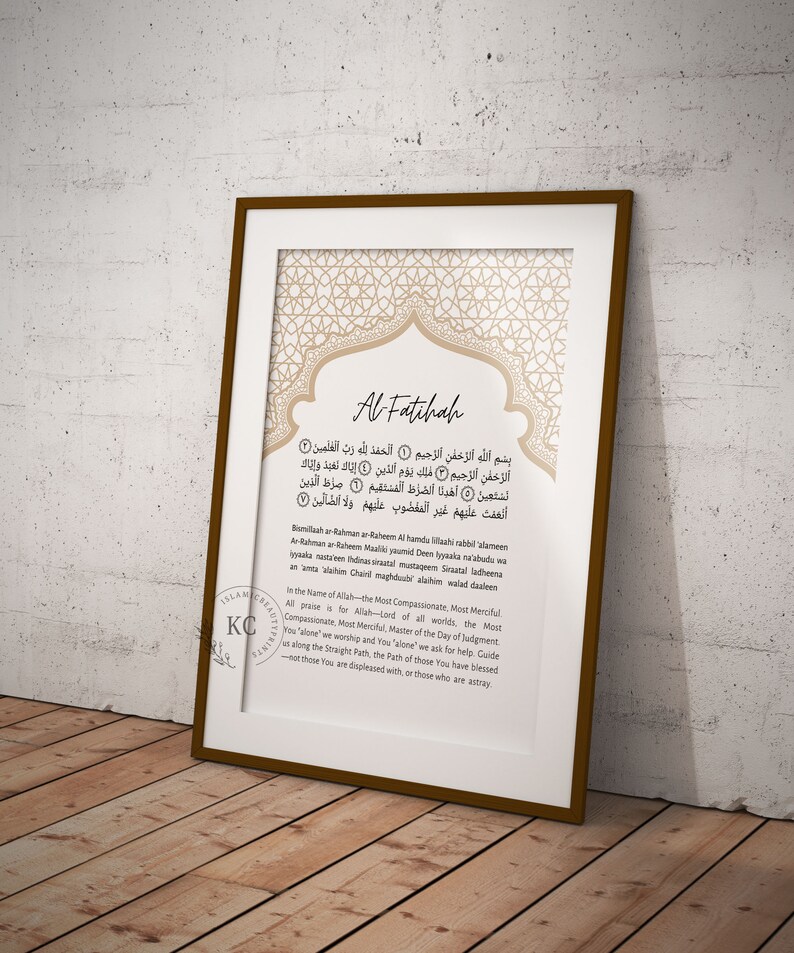 Al-Fatihah
بِسْمِ ٱللَّهِ ٱلرَّحْمَٰنِ ٱلرَّحِيمِ ١ ٱلْحَمْدُ لِلَّهِ رَبِّ ٱلْعَٰلَمِينَ ٢
ٱلرَّحْمَٰنِ ٱلرَّحِيمِ ٣ مَٰلِكِ يَوْمِ ٱلدِّينِ ٤ إِيَّاكَ نَعْبُدُ وَإِيَّاكَ
نَسْتَعِينُ ٥ ٱهْدِنَا ٱلصِّرَٰطَ ٱلْمُسْتَقِيمَ ٦ صِرَٰطَ ٱلَّذِينَ
أَنْعَمْتَ عَلَيْهِمْ غَيْرِ ٱلْمَغْضُوبِ عَلَيْهِمْ وَلَا ٱلضَّآلِّينَ ٧
Bismillaah ar-Rahman ar-Raheem Al hamdu lillaahi rabbil 'alameen
Ar-Rahman ar-Raheem Maaliki yaumid Deen Iyyaaka na'abudu wa
iyyaaka nasta'een Ihdinas siraatal mustaqeem Siraatal ladheena
an 'amta 'alaihim Ghairil maghduubi' alaihim walad daaleen
In the Name of Allah—the Most Compassionate, Most Merciful.
All praise is for Allah—Lord of all worlds, the Most
Compassionate, Most Merciful, Master of the Day of Judgment.
You ˹alone˺ we worship and You ˹alone˺ we ask for help. Guide
us along the Straight Path, the Path of those You have blessed
—not those You are displeased with, or those who are astray.
ISLAMICBEAUTYPRINTS
KC